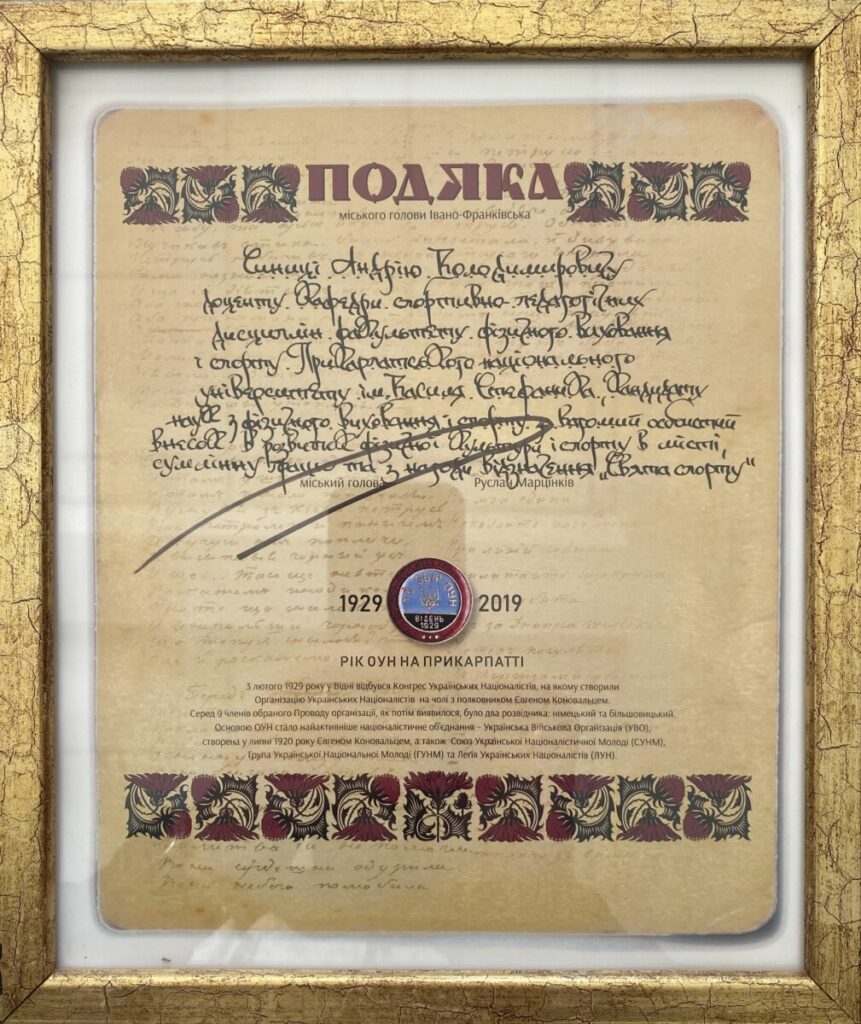 ПОДЯКА
міського голови Івано-Франківська
Синиці Андрію Володимировичу
доценту кафедри спортивно-педагогічних
дисциплін факультету фізичного виховання
і спорту Прикарпатського національного
університету ім. Василя Стефаника, кандидату
наук з фізичного виховання і спорту за вагомий особистий
внесок в розвиток фізичної культури і спорту в місті,
сумлінну працю та з нагоди відзначення „Свята спорту“
міський голова Руслан Марцінків
1929 2019
ЗБІР ОУН
ВІДЕНЬ
1929
РІК ОУН НА ПРИКАРПАТТІ
З лютого 1929 року у Відні відбувся Конгрес Українських Націоналістів, на якому створили
Організацію Українських Націоналістів на чолі з полковником Євгеном Коновальцем.
Серед 9 членів обраного Проводу організації, як потім виявилося, було два розвідника: німецький та більшовицький.
Основою ОУН стало найактивніше націоналістичне об'єднання – Українська Військова Організація (УВО),
створена у липні 1920 року Євгеном Коновальцем, а також Союз Української Націоналістичної Молоді (СУНМ),
Група Української Національної Молоді (ГУНМ) та Легія Українських Націоналістів (ЛУН).